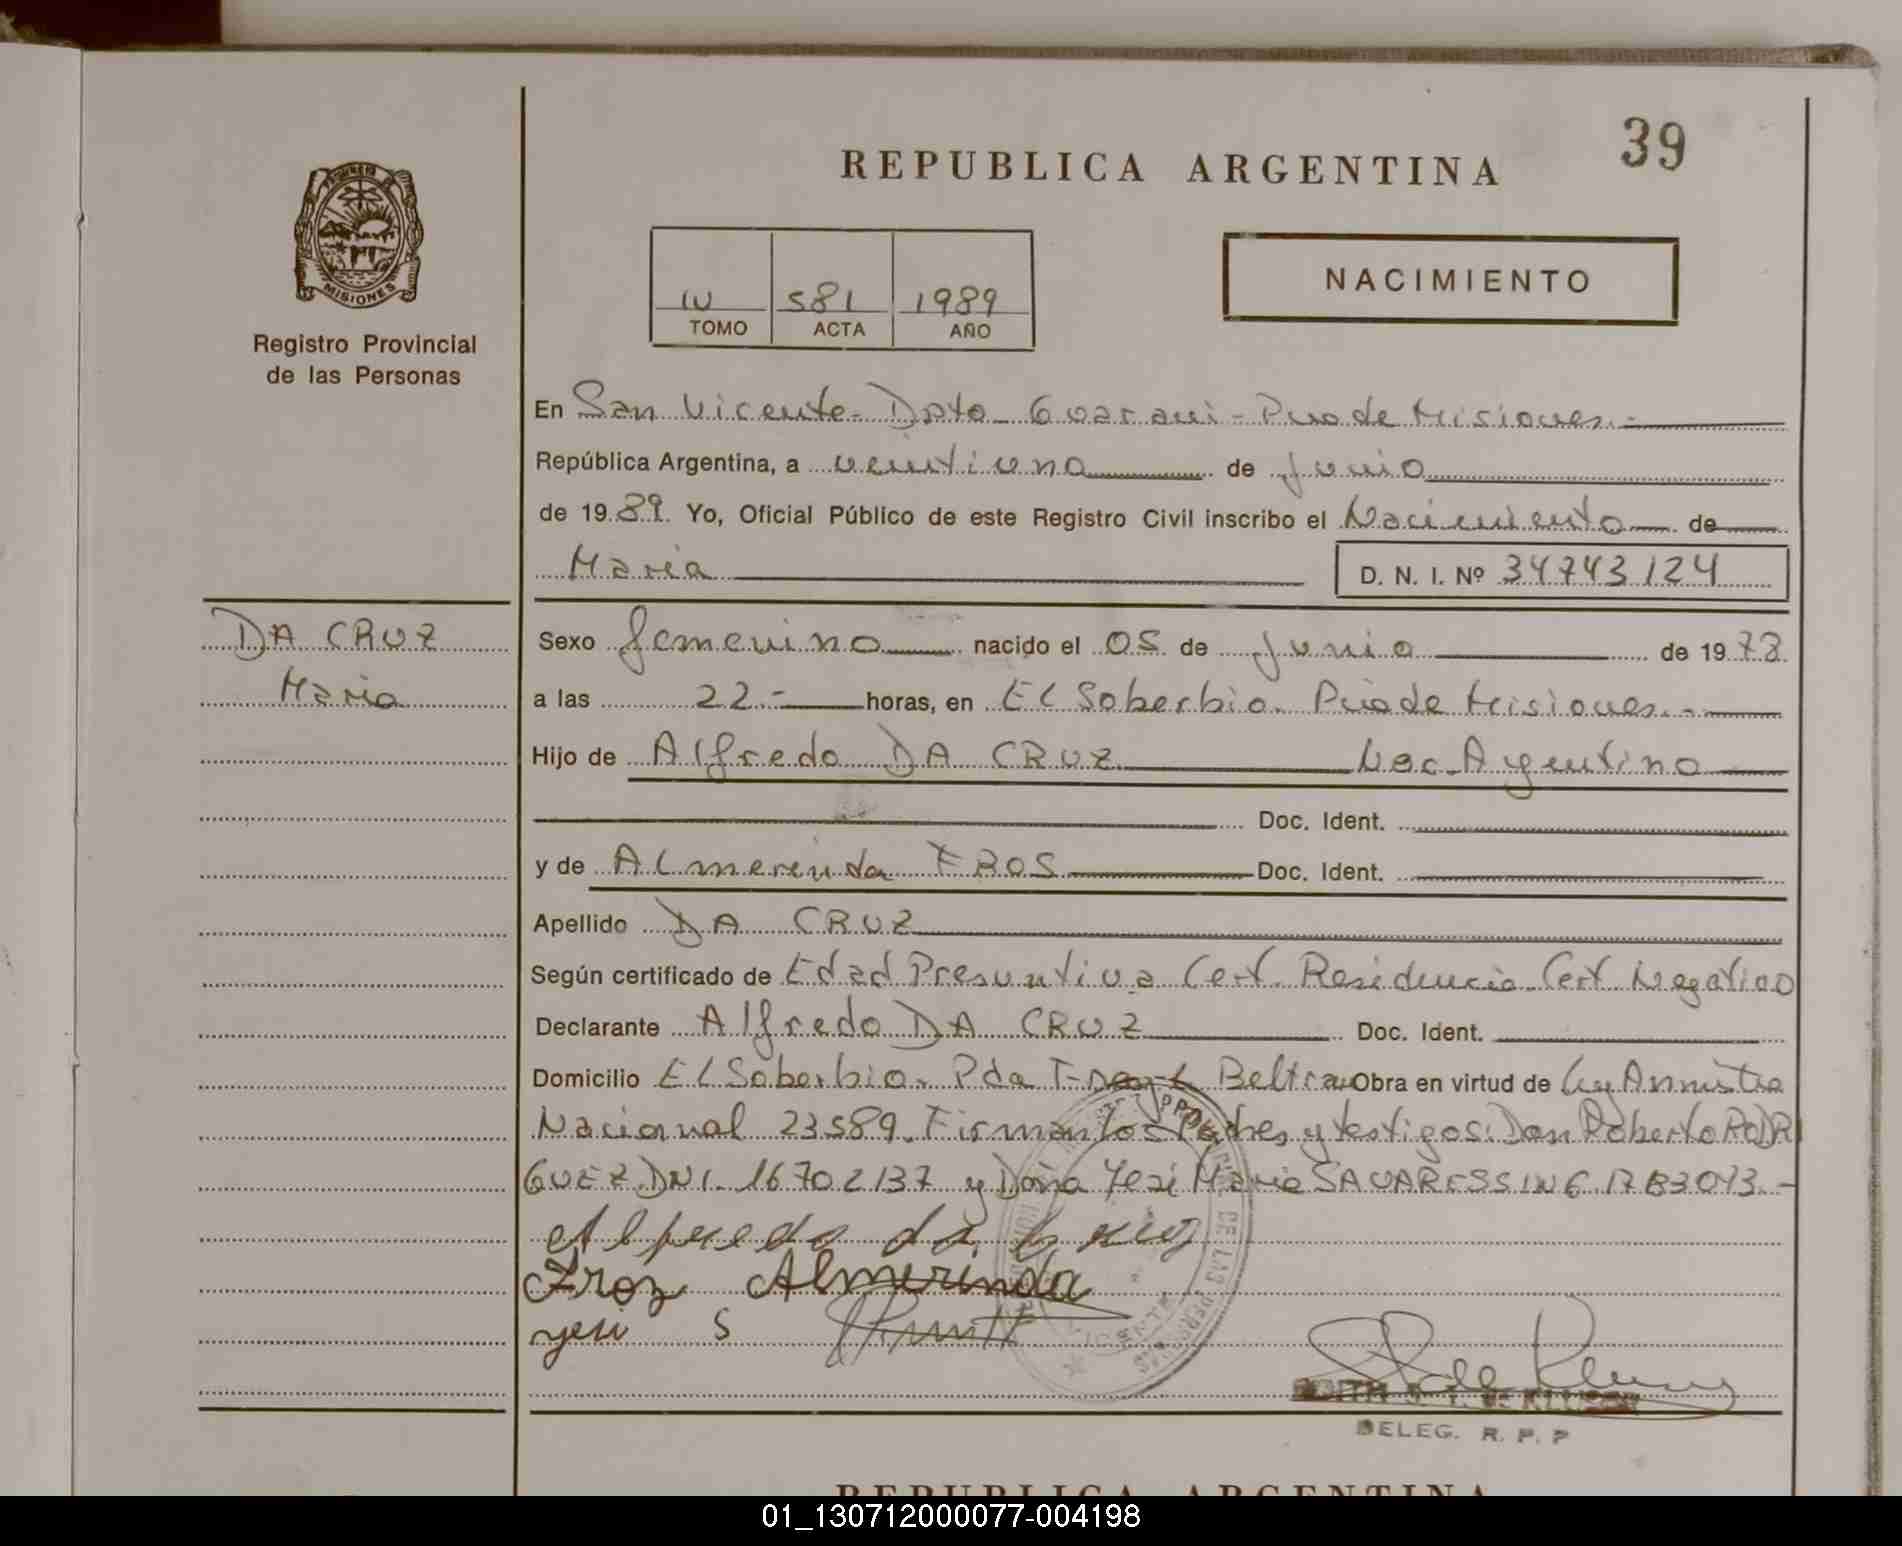 39
REPUBLICA ARGENTINA
PROVINCIA DE
MISIONES
Registro Provincial
de las Personas
IV 581 1989
TOMO ACTA AÑO
NACIMIENTO
En San Vicente - Dpto Guarani - Pcia de Misiones.-
República Argentina, a veintiuno de Junio
de 1989. Yo, Oficial Público de este Registro Civil inscribo el Nacimiento de
Maria D. N. I. Nº 34743124
DA CRUZ
Maria
Sexo femenino nacido el 05 de Junio de 1978
a las 22.- horas, en El Soberbio. Pcia de Misiones.-
Hijo de Alfredo DA CRUZ Nac. Argentino
Doc. Ident.
y de Almerinda FROS Doc. Ident.
Apellido DA CRUZ
Según certificado de Edad Presuntiva Cert. Residencia Cert Negativo
Declarante Alfredo DA CRUZ Doc. Ident.
Domicilio El Soberbio. Pda Beltran Obra en virtud de Ley Amnistia
Nacional 23589. Firman los Padres y testigos: Don Roberto RODRI
GUEZ DNI. 16702137 y Doña Yesi Maria
Alfredo da Cruz
Froz Almerinda
yesi S
DELEG. R. P. P
REPUBLICA ARGENTINA
01_130712000077-004198